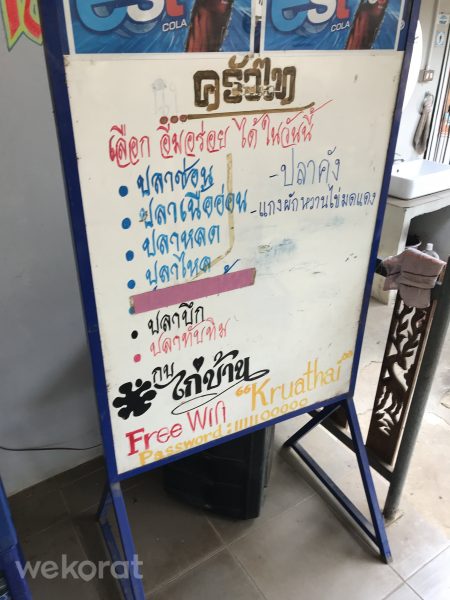 est COLA est COLA
ครัวไทย
เลือก อิ่มอร่อย ได้ ในวันนี้
• ปลาช่อน
• ปลาเนื้ออ่อน
• ปลาหลด
• ปลาไหล
• ปลาบึก
• ปลาทับทิม
กบ ไก่บ้าน
- ปลาคัง
- แกงผักหวานไข่มดแดง
Free Wifi "Kruathai"
Password : 1111100000
wekorat